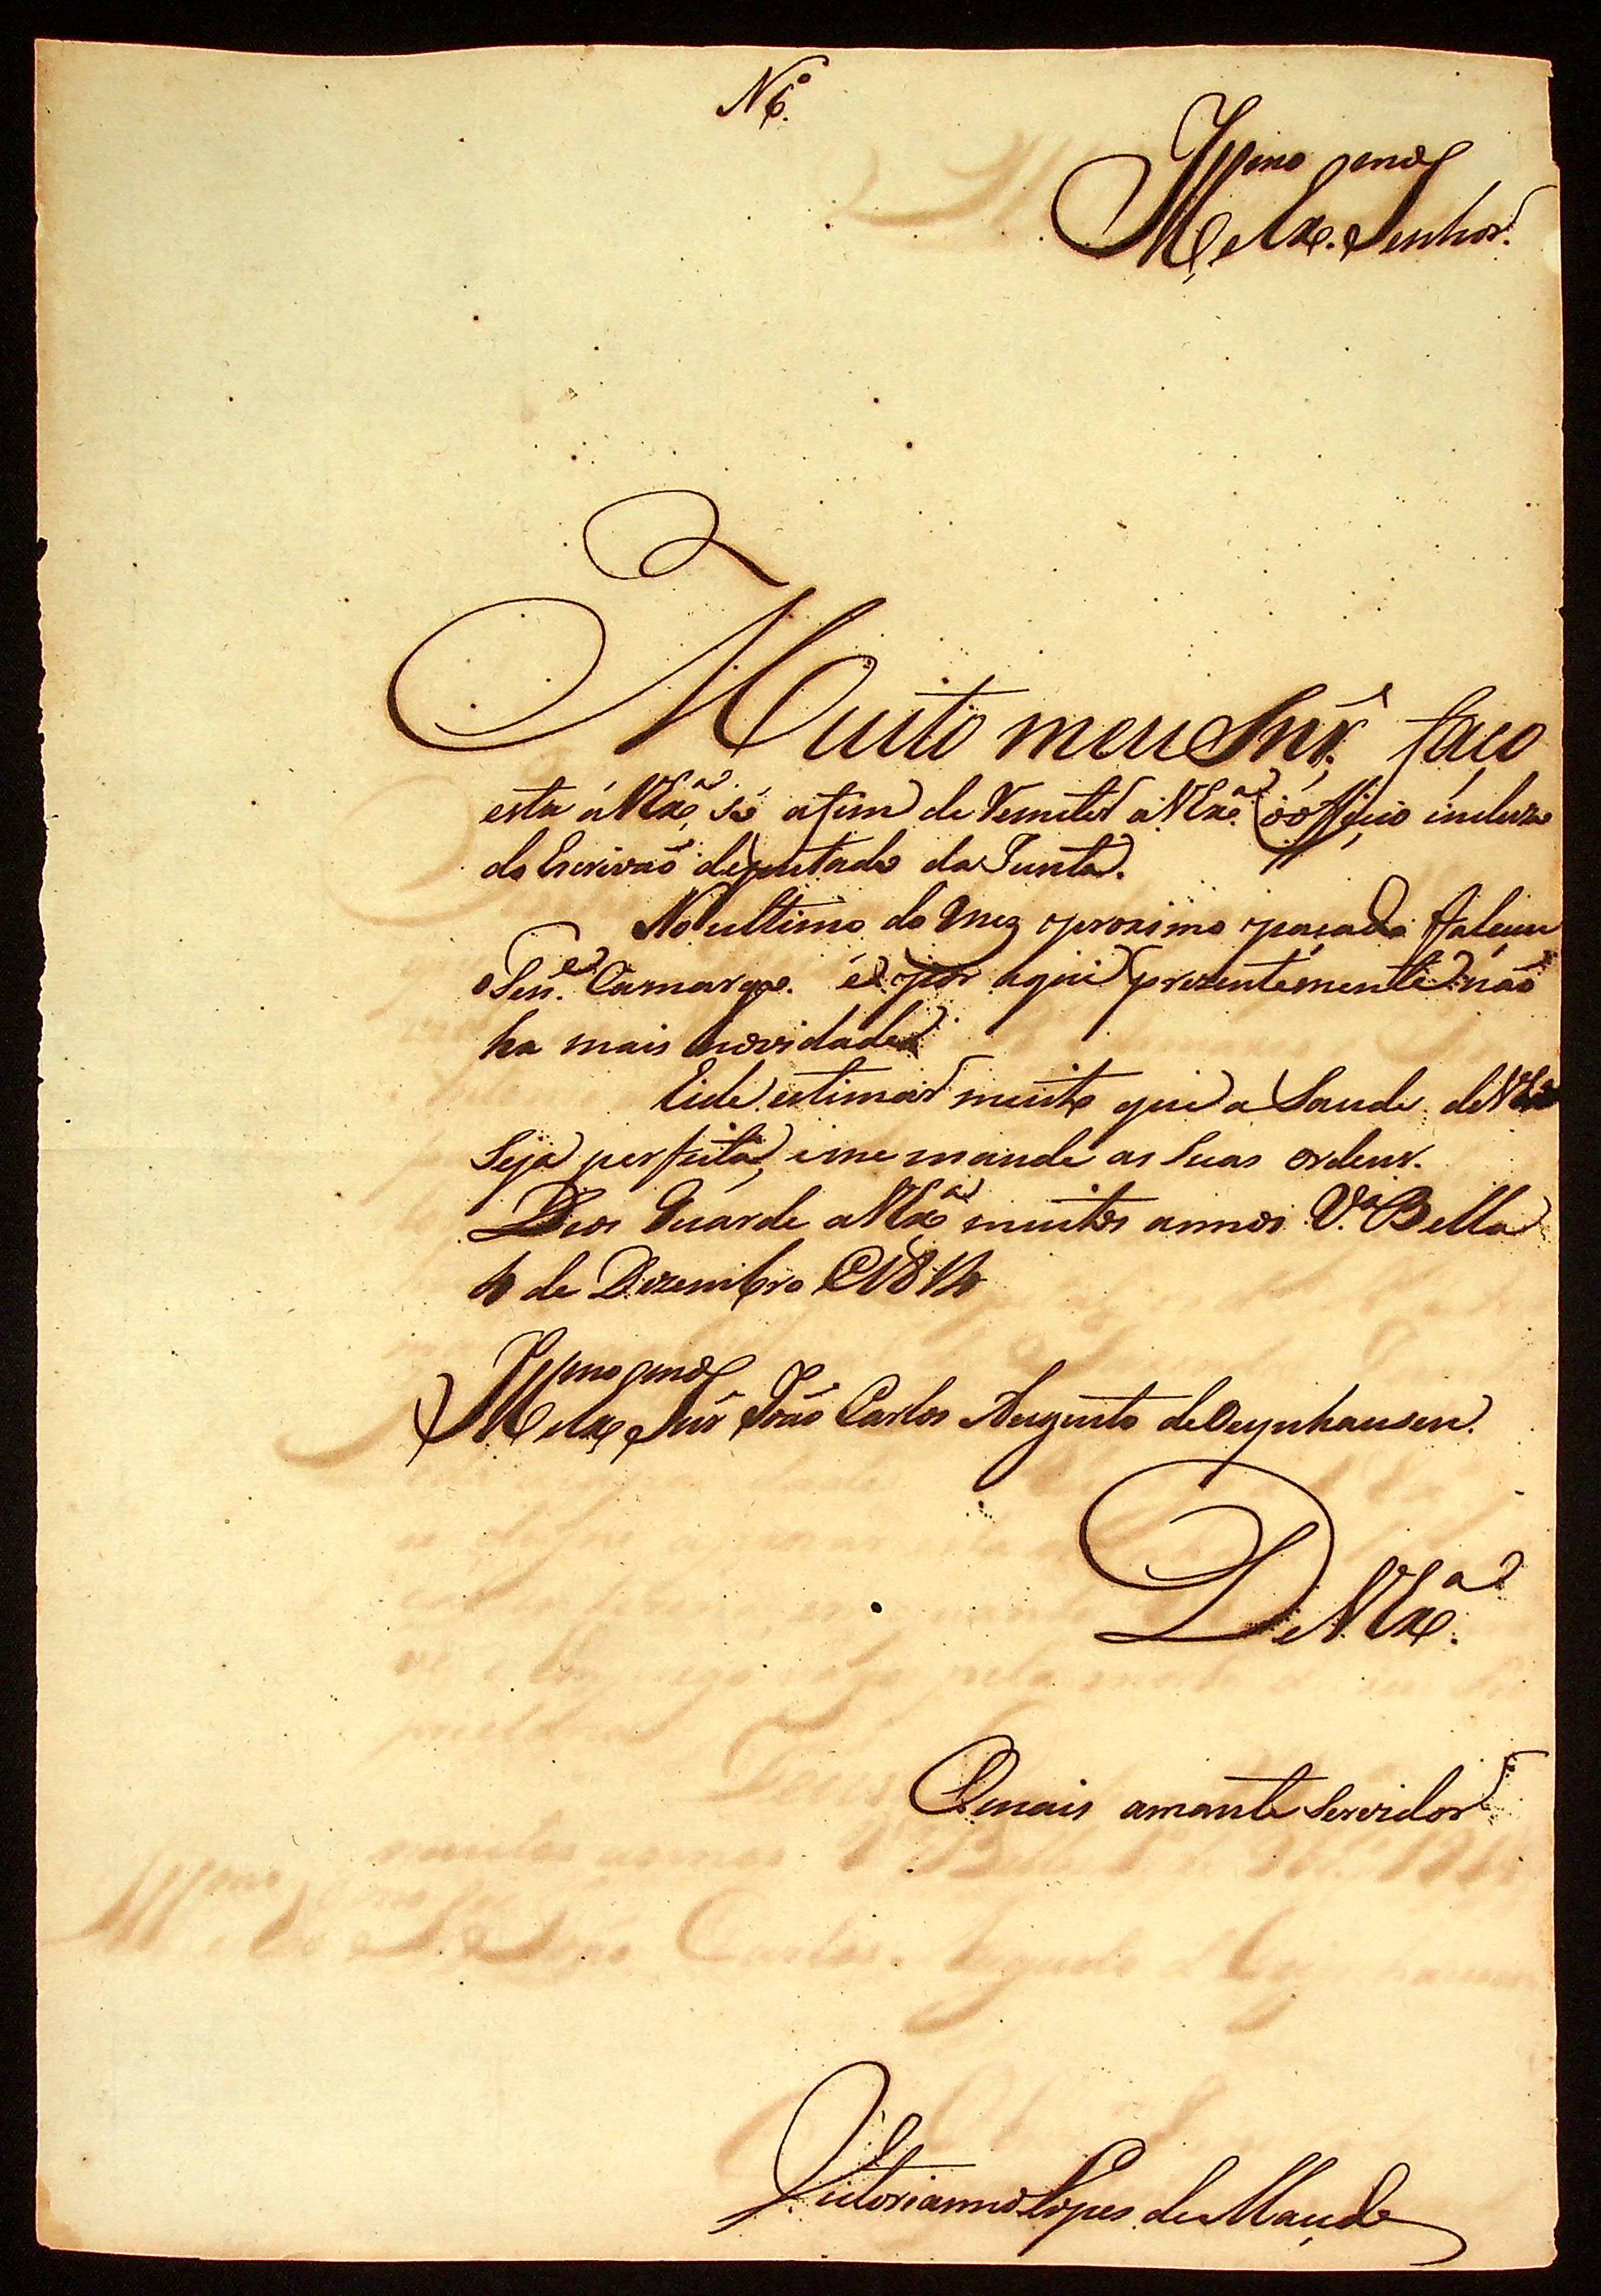 N 6.º
Ill.mo e Ex.mo Senhor.
Muito meu Snr. faço
esta á V Ex.ª só afim de Remeter a V Ex.ª o officio incluzo
do Escrivaõ deputado da Junta.
No ultimo do mez proximo paçado faleceu
o Ten.e Camargo. é por aqui prezentemente não
ha mais novidade
Eide estimar muito que a Saude de V Ex.ª
Seja perfeita, e me mande as Suas ordens.
Deos Guarde a V Ex.ª muitos annos V.ª Bella
4 de Dezembro 1814
Ill.mo e Ex.mo Snr João Carlos Augusto de Oeynhausen.
De V Ex.ª
O mais amante Servidor
Victorianno Lopes de Maçedo